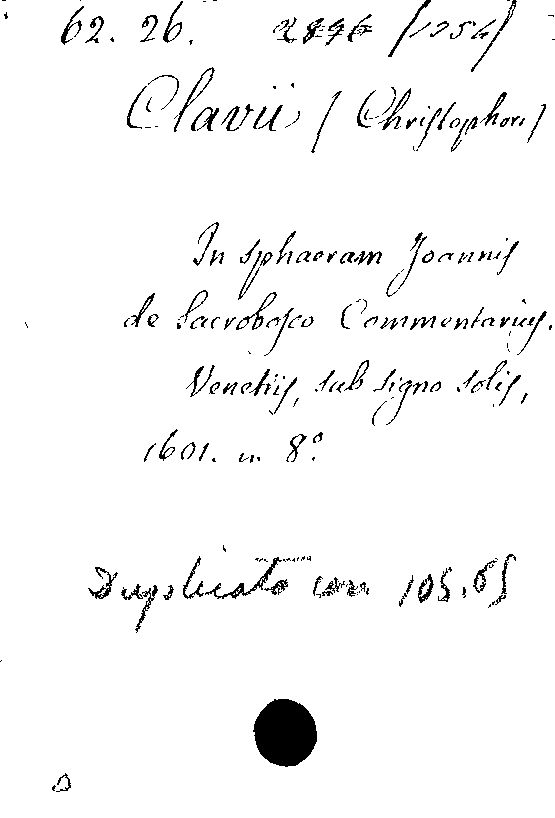 62. 26. 2896 (1256)
Clavii (Christophori)
In sphaeram Joannis
de Sacrobosco Commentarius.
Venetiis, sub signo solis,
1601. in 8.º
Duplicato con 105.65